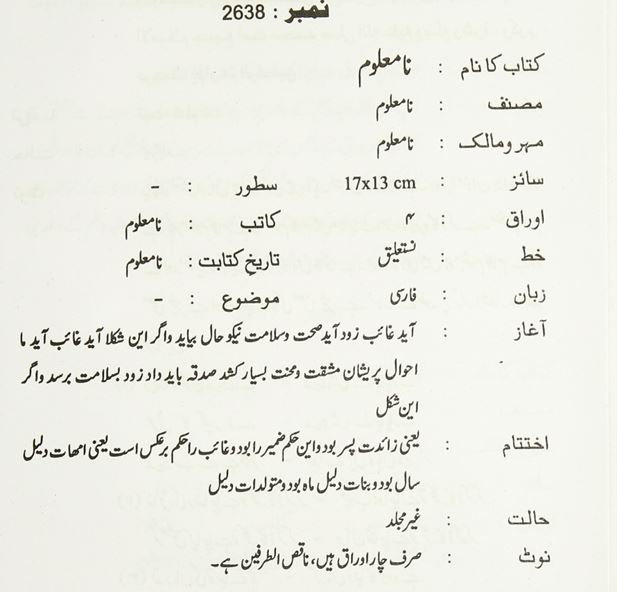 نمبر : 2638
کتاب کا نام : نامعلوم
مصنف : نامعلوم
مہر و مالک : نامعلوم
سائز : 17x13 cm سطور : –
اوراق : ۴ کاتب : نامعلوم
خط : نستعلیق تاریخ کتابت : نامعلوم
زبان : فارسی موضوع : –
آغاز : آید غائب زود آید صحت وسلامت نیکو حال بیاید واگر این شکلا آید غائب آید ما
احوال پریشان مشقت ومحنت بسیار کشد صدقہ باید داد زود بسلامت برسد واگر
این شکل
اختتام : یعنی زائدت پسر بود واین حکم ضمیر را بود وغائب را حکم برعکس است یعنی امہات دلیل
سال بود وبنات دلیل ماہ بود ومتولدات دلیل
حالت : غیر مجلد
نوٹ : صرف چار اوراق ہیں، ناقص الطرفین ہے۔